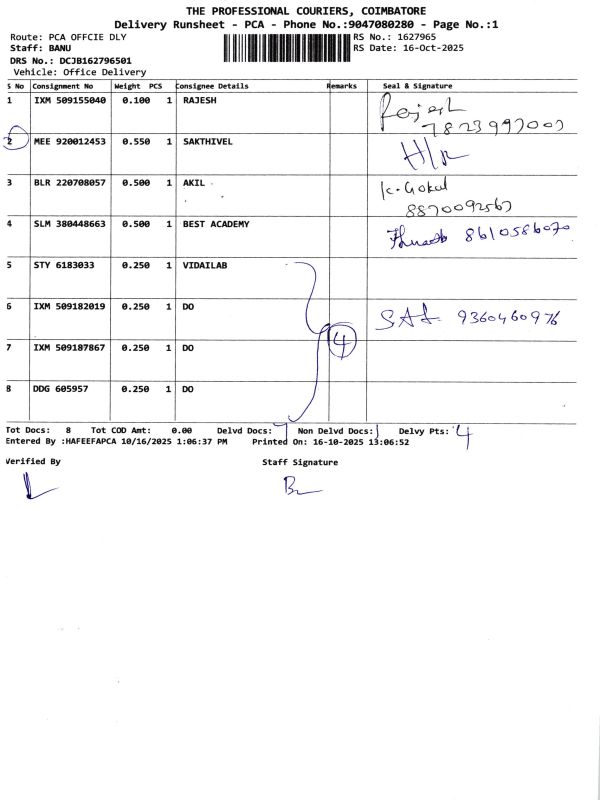 THE PROFESSIONAL COURIERS, COIMBATORE
Delivery Runsheet - PCA - Phone No.:9047080280 - Page No.:1
Route: PCA OFFCIE DLY RS No.: 1627965
Staff: BANU RS Date: 16-Oct-2025
DRS No.: DCJB162796501
Vehicle: Office Delivery
S No Consignment No Weight PCS Consignee Details Remarks Seal & Signature
1 IXM 509155040 0.100 1 RAJESH Rajesh
2 MEE 920012453 0.550 1 SAKTHIVEL
3 BLR 220708057 0.500 1 AKIL K. Gokul
8870092567
4 SLM 380448663 0.500 1 BEST ACADEMY 8610586070
5 STY 6183033 0.250 1 VIDAILAB
6 IXM 509182019 0.250 1 DO 9360460976
4
7 IXM 509187867 0.250 1 DO
8 DDG 605957 0.250 1 DO
Tot Docs: 8 Tot COD Amt: 0.00 Delvd Docs: 7 Non Delvd Docs: 1 Delvy Pts: 4
Entered By :HAFEEFAPCA 10/16/2025 1:06:37 PM Printed On: 16-10-2025 13:06:52
Verified By Staff Signature